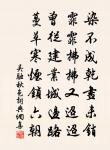 染不成乾畫未銷
霏霏拂拂又迢迢
曾從建業城邊路
蔓草寒煙鎖六朝
吳融秋色詞典網書